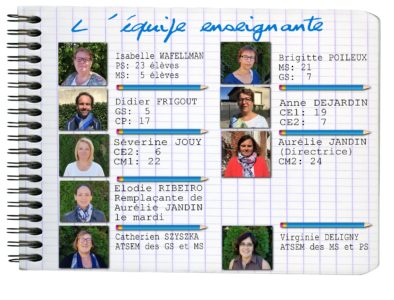 L'équipe enseignante
Isabelle WAFELLMAN
PS: 23 élèves
MS:  5 élèves
Brigitte POILEUX
MS: 21
GS:  7
Didier FRIGOUT
GS:  5
CP: 17
Anne DEJARDIN
CE1: 19
CE2:  7
Séverine JOUY
CE2:  6
CM1: 22
Aurélie JANDIN
(Directrice)
CM2: 24
Elodie RIBEIRO
Remplaçante de
Aurélie JANDIN
le mardi
Catherien SZYSZKA
ATSEM des GS et MS
Virginie DELIGNY
ATSEM des MS et PS